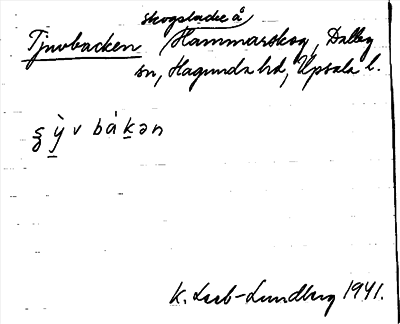 skogsbacke å
Tjuvbacken Hammarskog, Dalby
sn, Hagunda hd, Upsala l.
ʂỳ̠v bák̠ən
K. Leeb-Lundberg 1941.